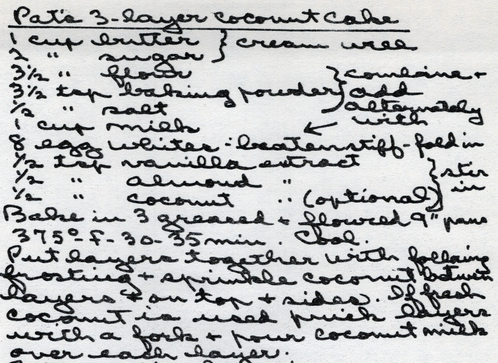 Pat's 3-layer Coconut Cake
1 cup butter } cream well
2 " sugar
3½ " flour } combine +
3½ tsp baking powder add
½ " salt alternately
1 cup milk ← with
8 egg whites - beaten stiff - fold in
½ tsp vanilla extract } stir
½ " almond " in
½ " coconut " (optional)
Bake in 3 greased + floured 9" pans
375°-f-30-35 min. Cool.
Put layers together with following
frosting + sprinkle coconut between
layers + on top + sides. If fresh
coconut is used prick layers
with a fork + pour coconut milk
over each layer.